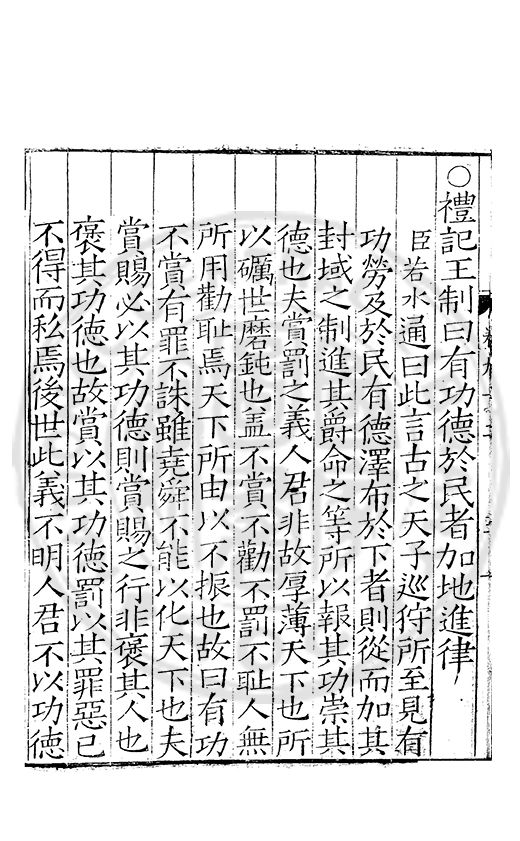 ○禮記王制曰有功德於民者加地進律
臣若水通曰此言古之天子巡狩所至見有
功勞及於民有德澤布於下者則從而加其
封域之制進其爵命之等所以報其功崇其
德也夫賞罰之義人君非故厚薄天下也所
以礪世磨鈍也盖不賞不勸不罰不恥人無
所用勸恥焉天下所由以不振也故曰有功
不賞有罪不誅雖堯舜不能以化天下也夫
賞賜必以其功德則賞賜之行非褒其人也
褒其功德也故賞以其功德罰以其罪惡已
不得而私焉後世此義不明人君不以功德